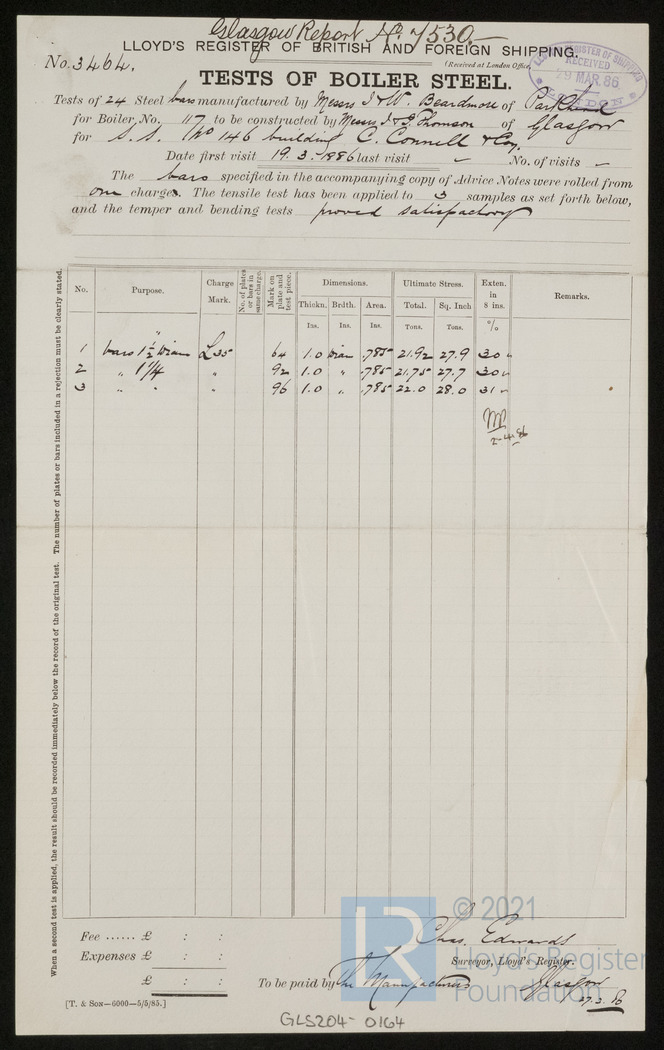 Glasgow Report No. 7530
LLOYD'S REGISTER OF BRITISH AND FOREIGN SHIPPING.
No. 3464.
(Received at London Office,
LLOYD'S REGISTER OF SHIPPING
RECEIVED
29 MAR 86
LONDON
TESTS OF BOILER STEEL.
Tests of 24 Steel bars manufactured by Messrs I & W. Beardmore of Parkhead
for Boiler, No. 117 to be constructed by Messrs J. & G. Thomson of Glasgow
for S.S. No 146 building C. Connell & Coy.
Date first visit 19.3.-1886 last visit - No. of visits -
The bars specified in the accompanying copy of Advice Notes were rolled from
one charges. The tensile test has been applied to 3 samples as set forth below,
and the temper and bending tests proved satisfactory
No. Purpose. Charge Mark. No. of plates or bars in same charge. Mark on plate and test piece. Dimensions. Ultimate Stress. Exten. in 8 ins. Remarks.
Thickn. Brdth. Area. Total. Sq. Inch
Ins. Ins. Ins. Tons. Tons. %
"
1 bars 1 1/2 Diam L 35 64 1.0 Diam .785 21.92 27.9 30 "
2 " 1 1/4 " 92 1.0 " .785 21.75 27.7 30 "
3 " " " 96 1.0 " .785 22.0 28.0 31 "
2-4-86
When a second test is applied, the result should be recorded immediately below the record of the original test. The number of plates or bars included in a rejection must be clearly stated.
Fee ...... £ : :
Expenses £ : :
£ : :
Chas. Edwards
Surveyor, Lloyd's Register.
To be paid by The Manufacturers
Glasgow
27.3.86
[T. & SON—6000—5/5/85.]
LR
© 2021
Lloyd's Register
Foundation
GLS204-0164